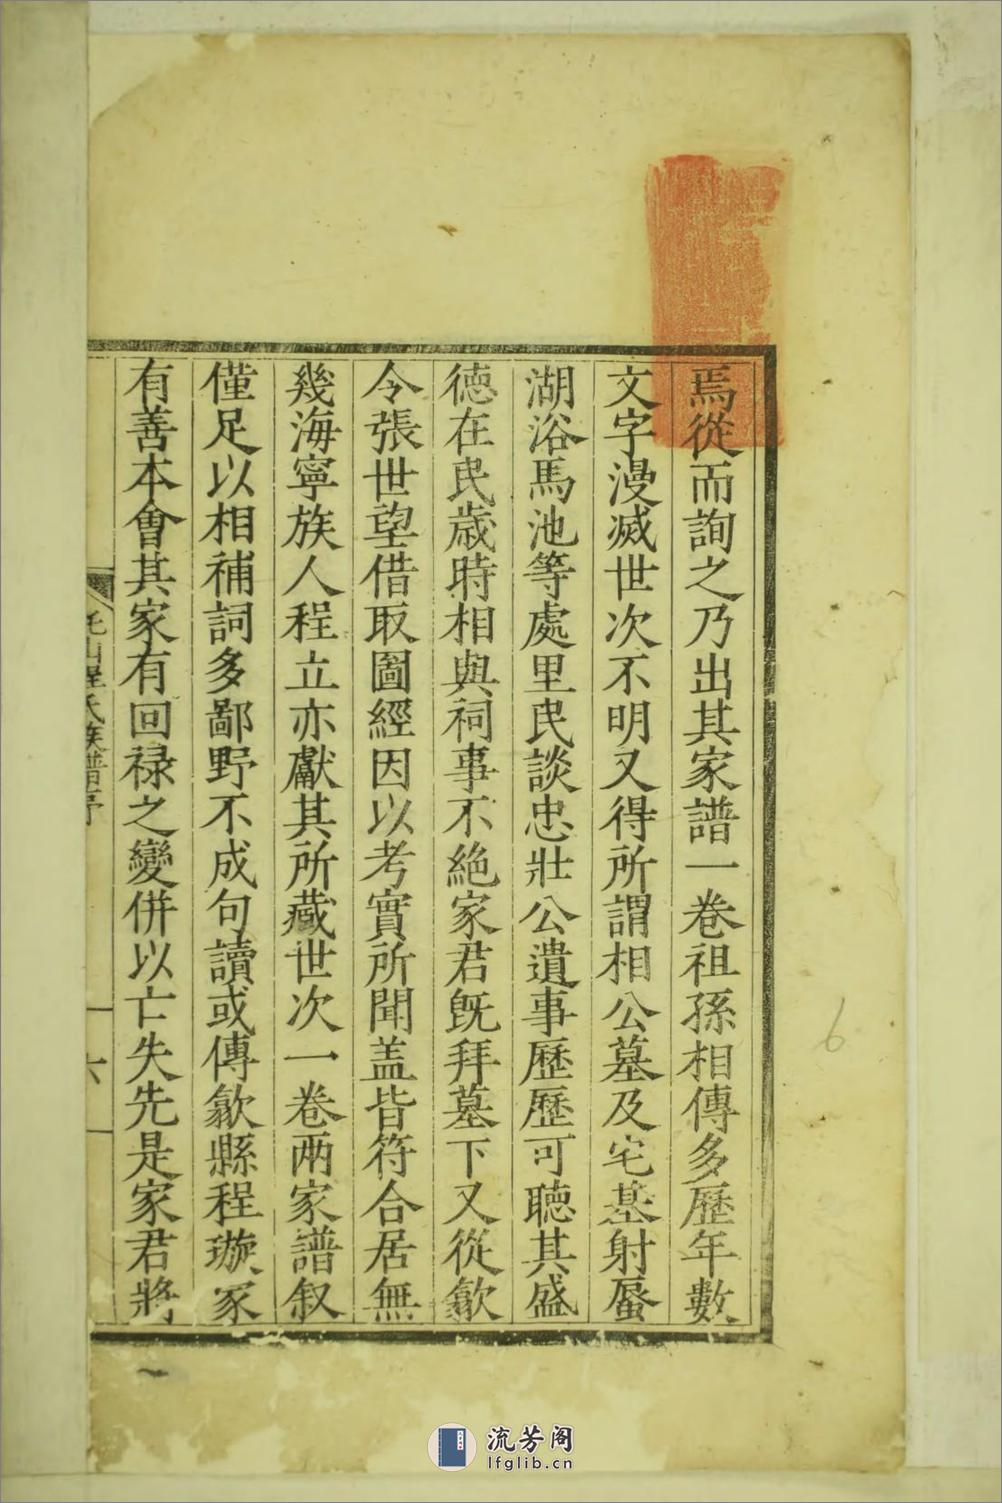 焉從而詢之乃出其家譜一卷祖孫相傳多歷年數
文字漫滅世次不明又得所謂相公墓及宅基射蜃
湖浴馬池等處里民談忠壯公遺事歷歷可聽其盛
德在民歲時相與祠事不絕家君旣拜墓下又從歙
令張世望借取圖經因以考實所聞盖皆符合居無
幾海寧族人程立亦獻其所藏世次一卷兩家譜叙
僅足以相補詞多鄙野不成句讀或傳歙縣程璇家
有善本會其家有回禄之變併以亡失先是家君將
山程氏族譜序
六
6
流芳阁
lfglib.cn